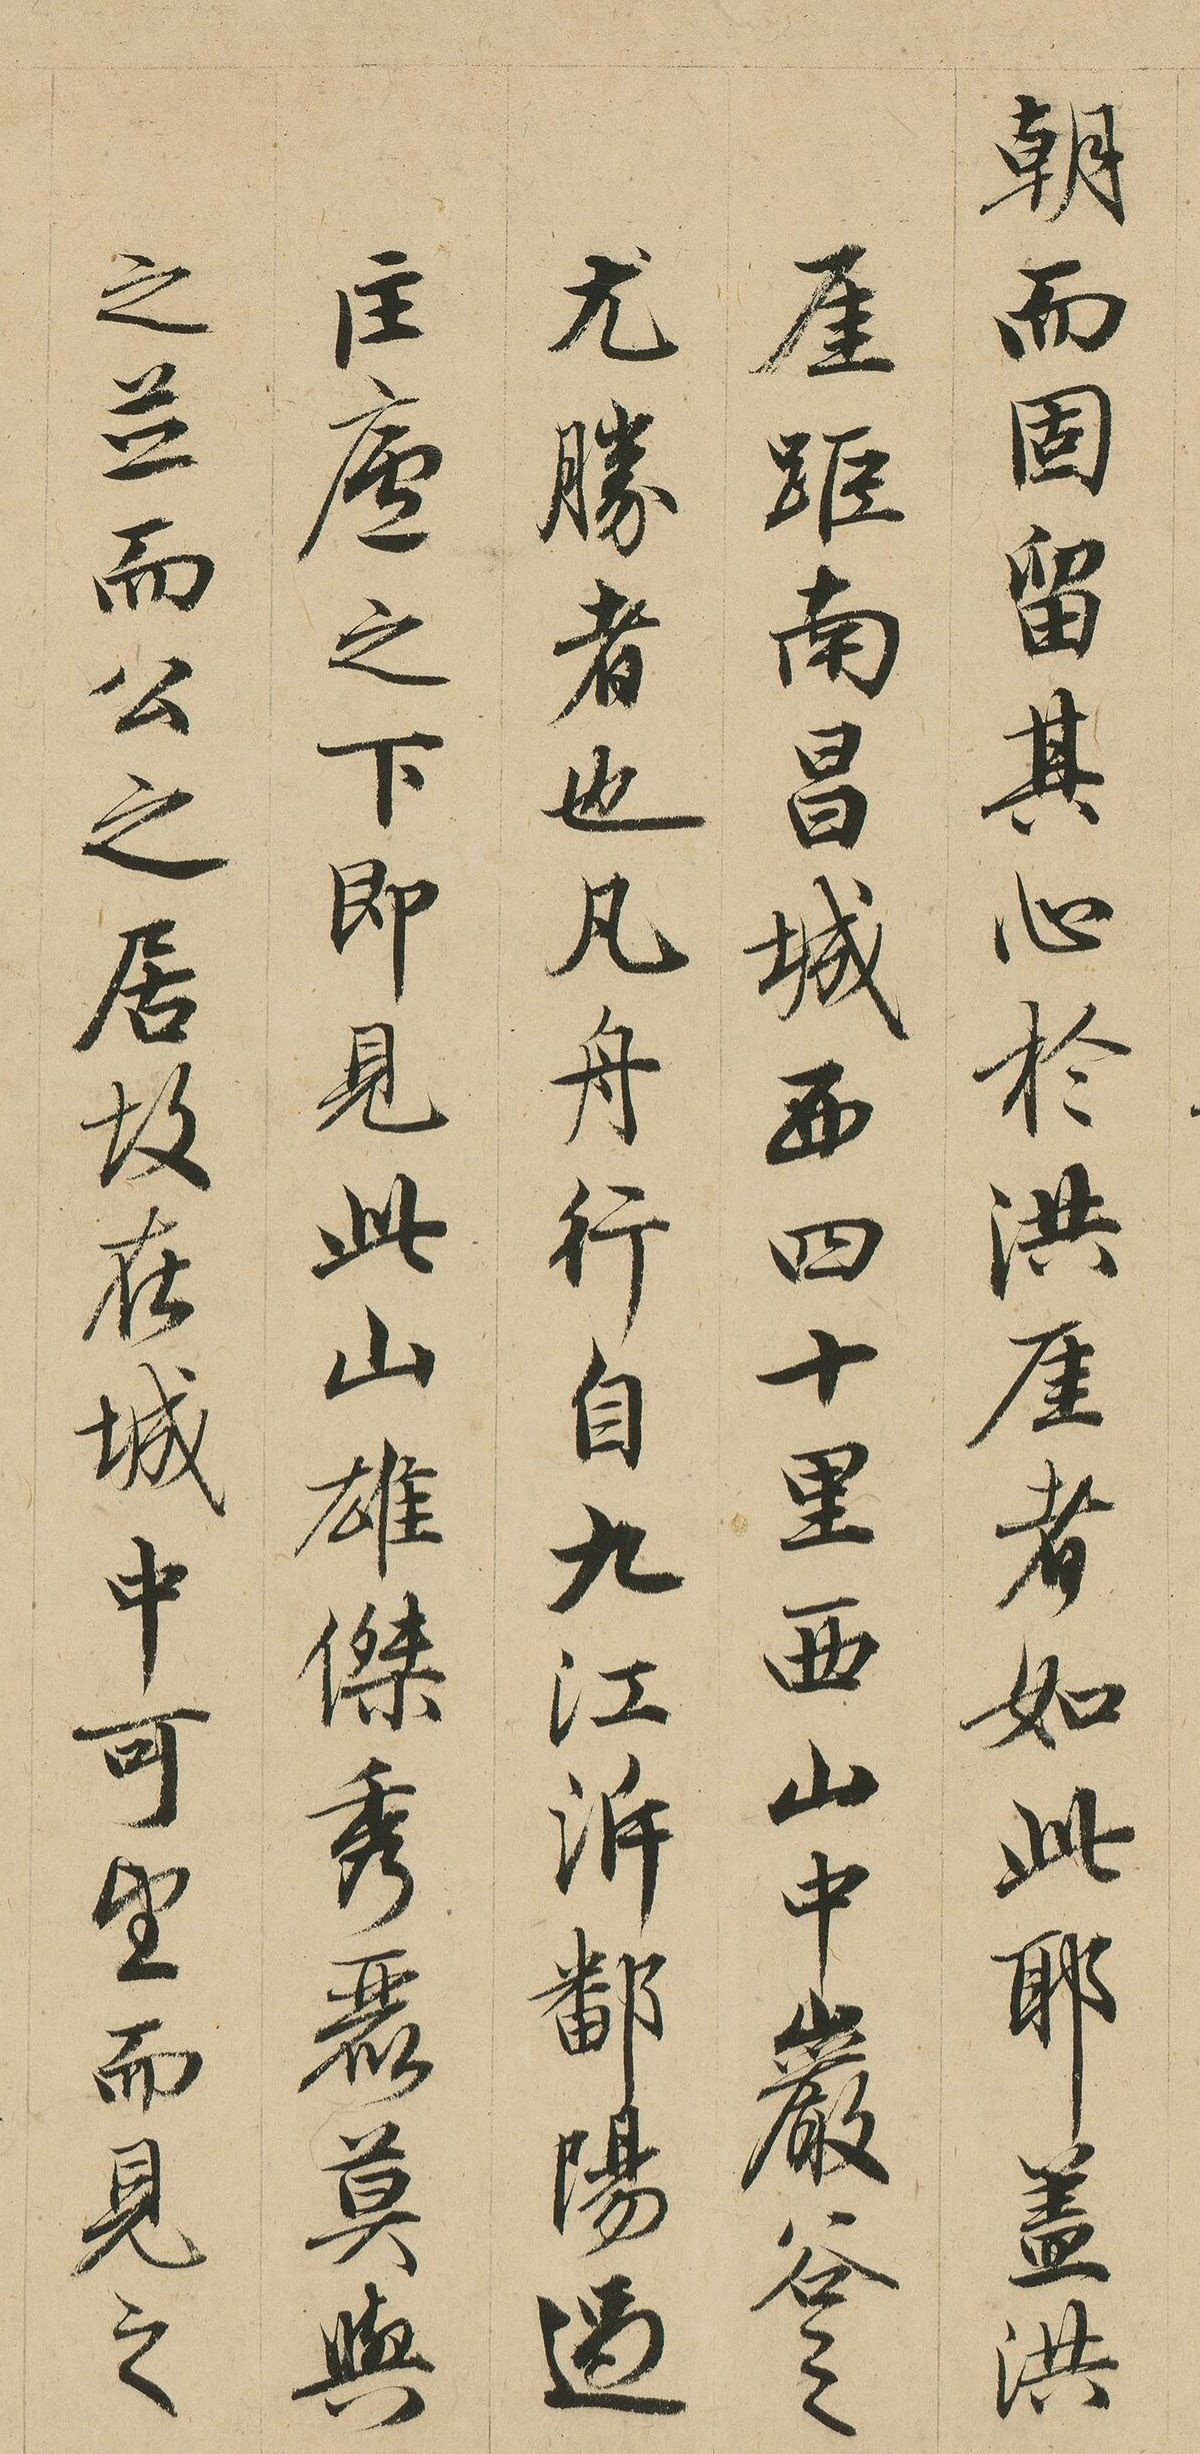 朝而固留其心於洪厓者如此耶蓋洪
厓距南昌城西四十里西山中巖谷之
尤勝者也凡舟行自九江泝鄱陽過
匡廬之下即見此山雄傑秀麗莫與
之並而公之居故在城中可望而見之